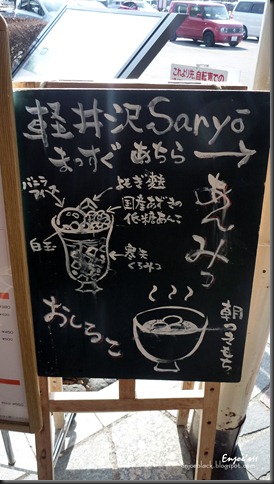 これより先、自転車での
軽井沢Sanyō
まっすぐ あちら →
あんみつ
バニラ
アイス
よもぎ麩
国産あずきの
低糖あんこ
白玉
寒天
くろみつ
おしるこ
朝つきもち
Enjoe's
enjoeblack.blogspot.com